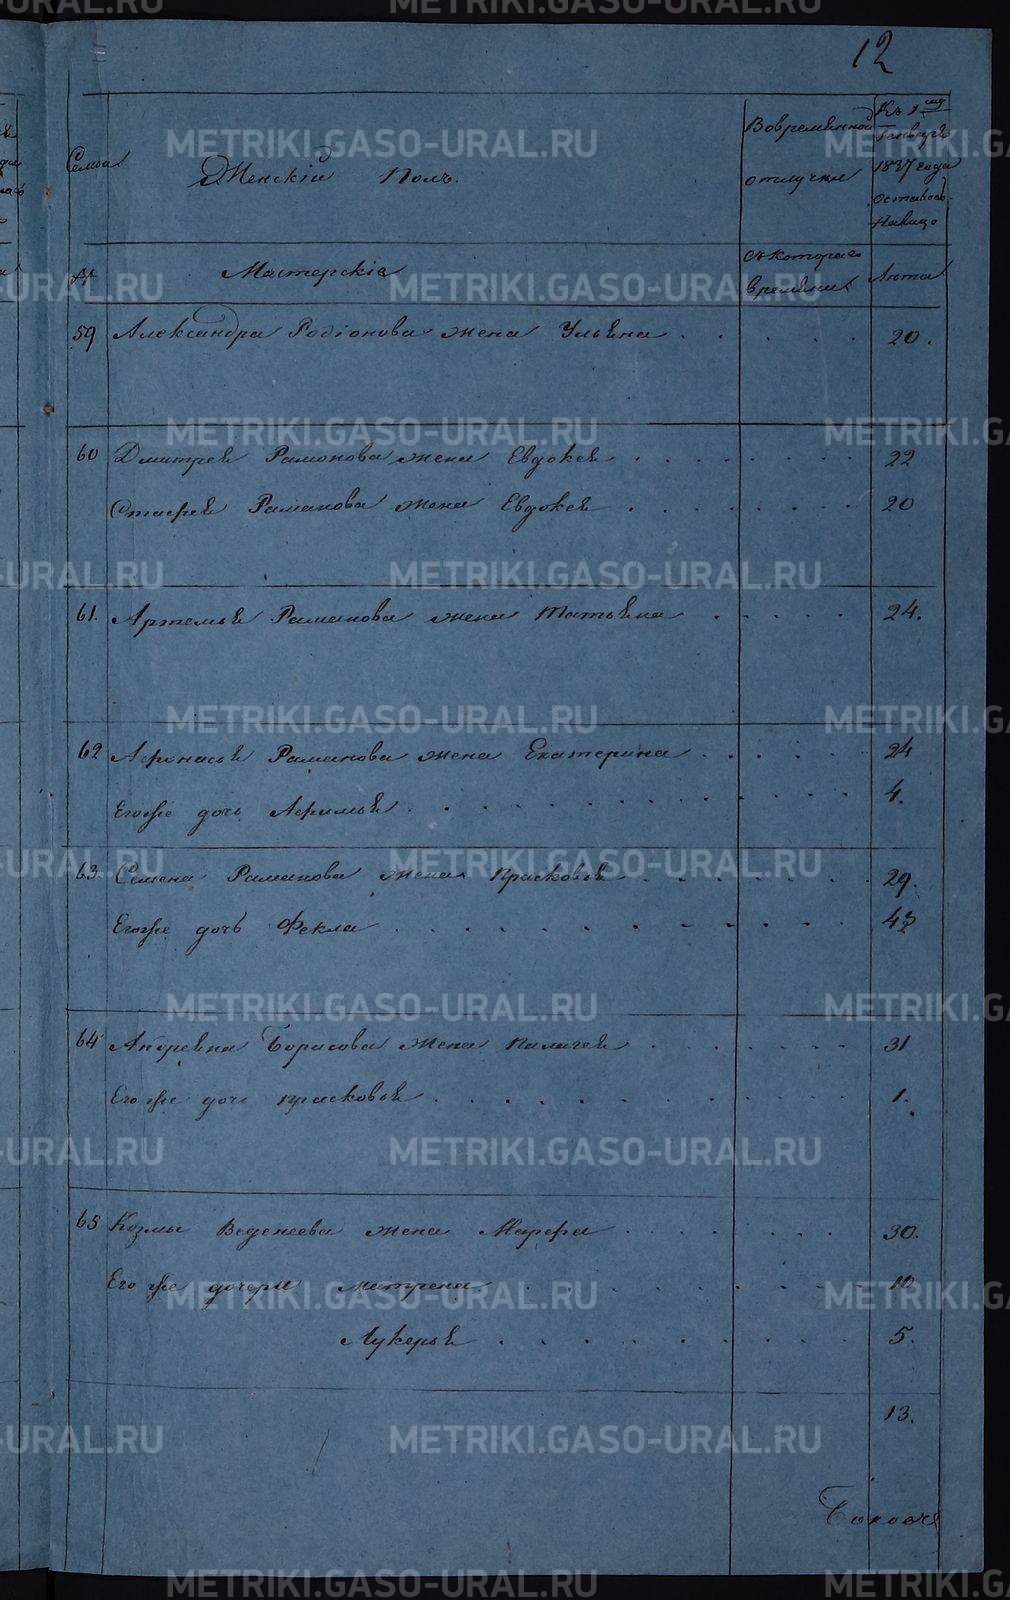 12
Семьи
Женскій Полъ.
Вовременной отлучке
Къ 1му Генваря 1837 года осталось налицо
№
Мастерскіе
съ котораго времени
Лѣта
59 Александра Родіонова жена Ульяна 20.
60 Дмитрея Раманова жена Евдокея 22
Раманова жена Евдокея 20
61. Артемья Раманова жена Татьяна 24.
62 Афонасья Раманова жена Екатерина 24
Егоже дочь Афимья 4.
63 Семена Раманова жена Прасковья 29.
Егоже дочь Фекла
64 Борисова жена Палагея 31
Егоже дочь Прасковья 1.
65 Козмы Веденеева жена Марфа 30.
Егоже дочери Матрена 10
Лукерья 5.
13.
METRIKI.GASO-URAL.RU